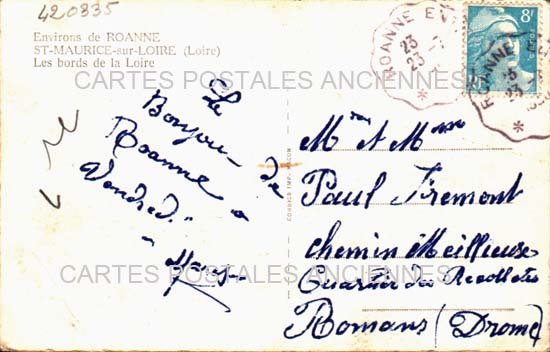 420335
Environs de ROANNE
ST-MAURICE-sur-LOIRE (Loire)
Les bords de la Loire
ROANNE
23
8F
ROANNE
23
CARTES POSTALES ANCIENNES
Le
Bonjour de
Roanne
Vendredi
COMBIER IMP. MACON
Mr et Mme
Paul Fremont
chemin Meilleuse
Quartier des Recollets
Romans (Drome)
CARTES POSTALES ANCIENNES